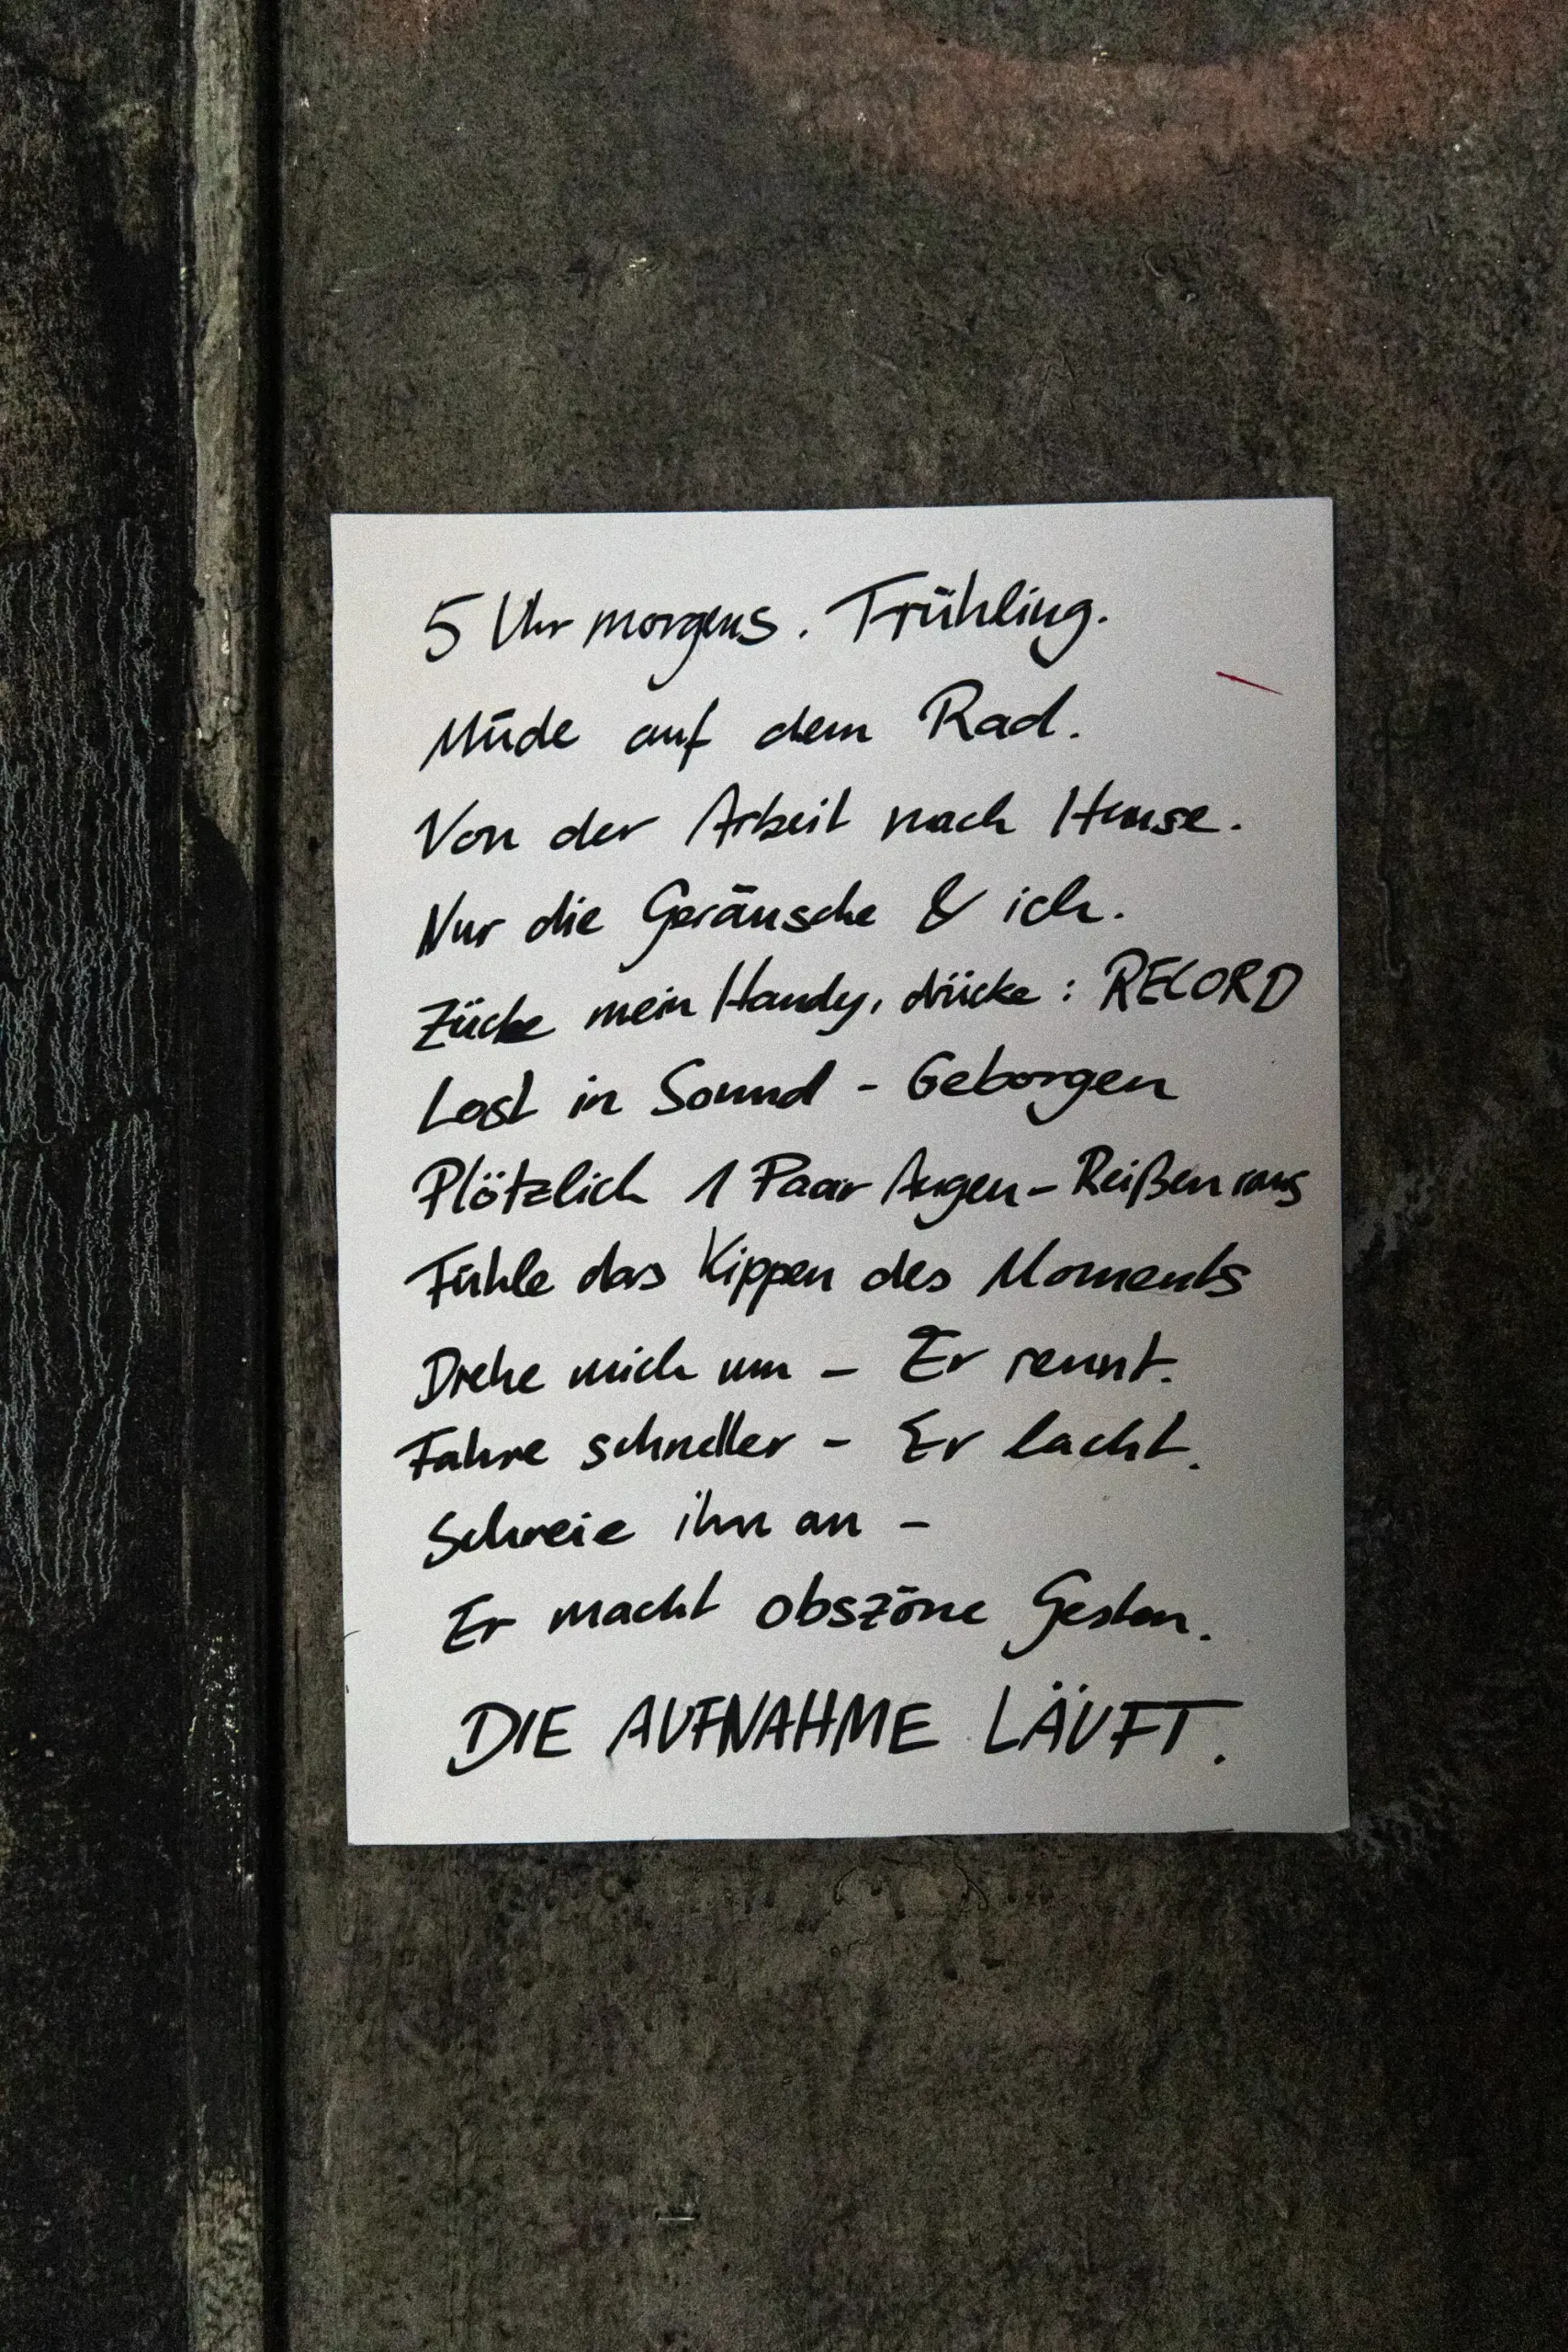 5 Uhr morgens. Frühling.
Müde auf dem Rad.
Von der Arbeit nach Hause.
Nur die Geräusche & ich.
Zücke mein Handy, drücke: RECORD
Lost in Sound - Geborgen
Plötzlich 1 Paar Augen - Reißen raus
Fühle das Kippen des Moments
Drehe mich um - Er rennt.
Fahre schneller - Er lacht.
Schreie ihn an -
Er macht obszöne Gesten.
DIE AUFNAHME LÄUFT.